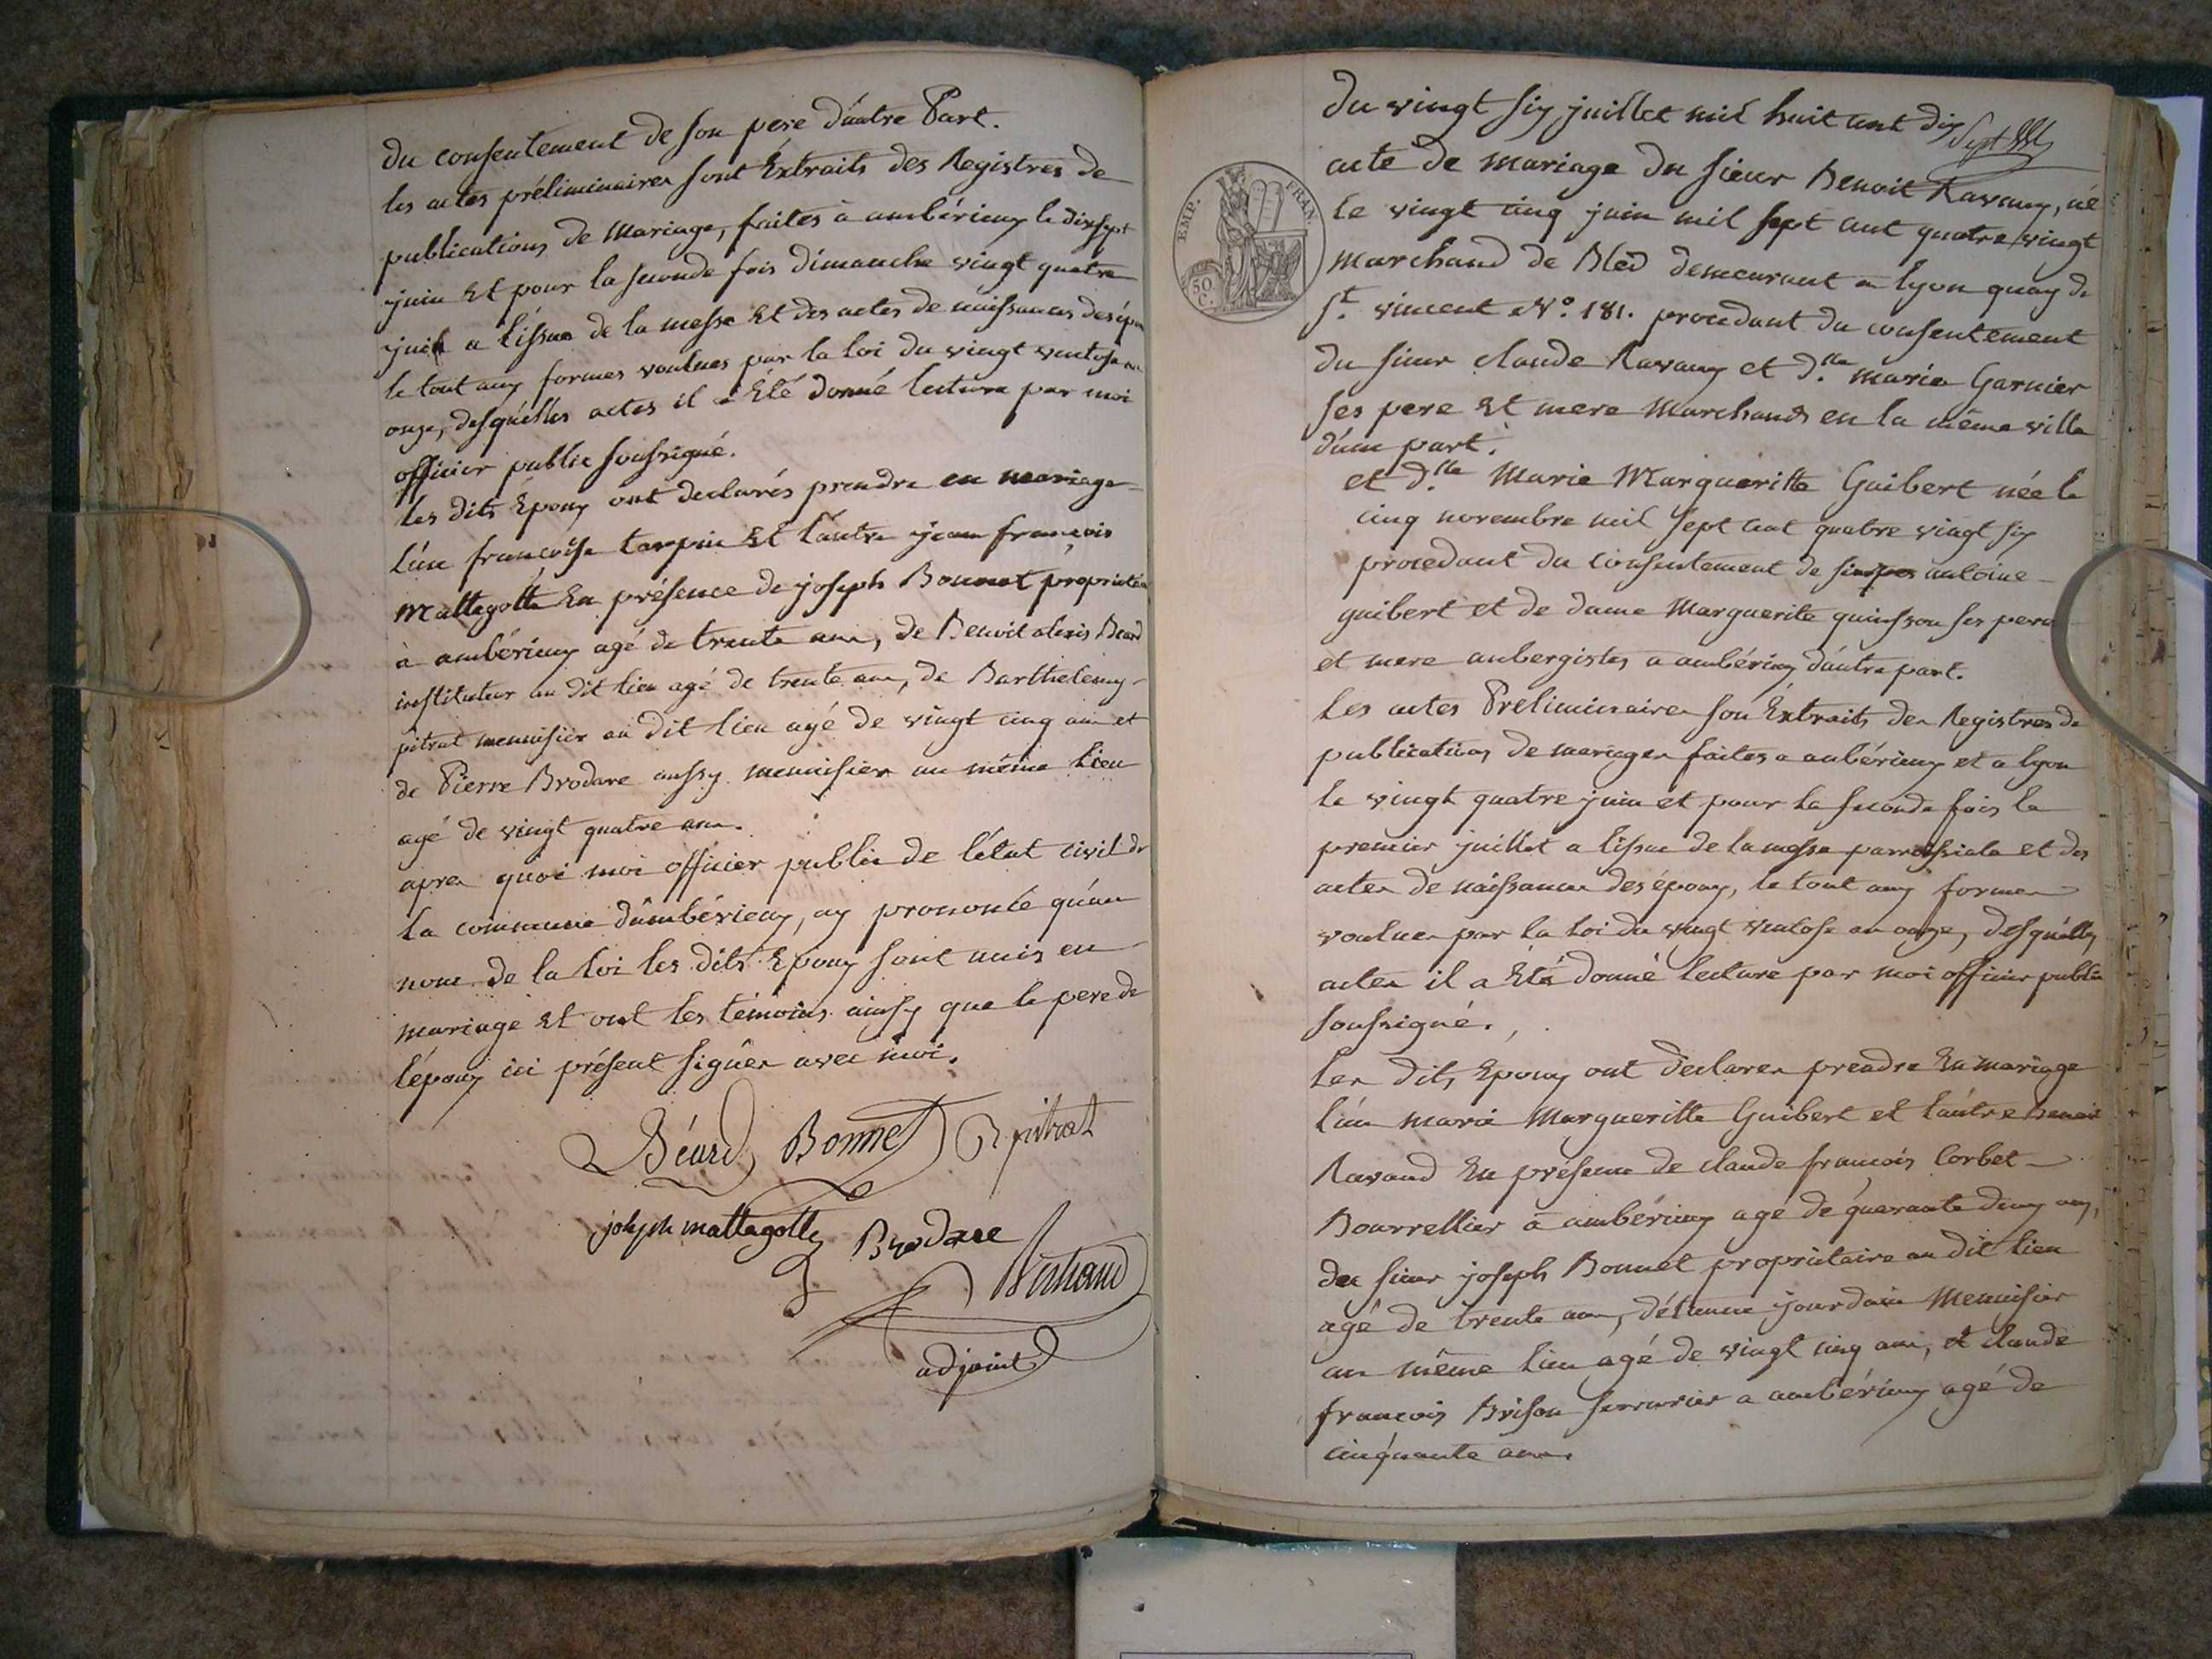 du consentement de son pere d'autre Part.
les actes préliminaires sont Extraits des Registres de
publications de Mariage, faites à ambérieux le dix sept
juin Et pour la seconde fois dimanche vingt quatre
juin a l'issue de la messe Et des actes de naissances des
le tout aux formes voulues par la loi du vingt ventose an
onze, desquelles actes il a Eté donné lecture par moi
officier public soussigné.
les dits Epoux ont declarés prendre en mariage
l'un francoise tarpin Et l'autre jean francois
Mattegotte En présence de joseph Bonnet propriétaire
à ambérieux agé de trente ans, de Benoit alexis Beard
instituteur au dit lieu agé de trente ans, de Barthelemy
pitrat menuisier au dit lieu agé de vingt cinq ans et
de Pierre Brodare aussy menuisier au même lieu
agé de vingt quatre ans.
apres quoi moi officier public de l'état civil de
la commune d'ambérieux, ay prononcé qu'au
nom de la loi les dits Epoux sont unis en
mariage Et ont les témoins ainsy que le pere de
l'époux ici présent signés avec moi.
Béard Bonnet B pitrat
joseph mattegotte Brodare
adjoint
du vingt six juillet mil huit cent dix sept
EMP. FRAN.
50 C.
acte de mariage du sieur Benoit Ravaux, né
le vingt cinq juin mil sept cent quatre vingt
marchand de Bled demeurant a lyon quay de
St. vincent No. 181. procedant du consentement
du sieur claude Ravaux et dlle. marie Garnier
ses pere Et mere Marchands en la même ville
d'une part.
et dlle. Marie Margueritte Guibert née le
cinq novembre mil sept cent quatre vingt six
procedant du consentement de antoine
guibert et de dame Marguerite quinsson ses pere
et mere aubergistes a ambérieux d'autre part.
Les actes Preliminaires son Extraits des Registres de
publications de mariages faites a ambérieux et a lyon
le vingt quatre juin et pour la seconde fois le
premier juillet a l'issue de la messe parroissiale et des
actes de naissances des époux, le tout aux formes
voulues par la loi du vingt ventose an onze, desquelles
actes il a Eté donné lecture par moi officier public
soussigné.
Les dits Epoux ont declarés prendre En mariage
l'un marie Margueritte Guibert et l'autre Benoit
Ravaud En présence de claude francois Corbet
Bourrellier à ambérieux agé de quarante deux ans,
du sieur joseph Bonnet propriétaire au dit lieu
agé de trente ans, d'étienne jourdain Menuisier
au même lieu agé de vingt cinq ans, et claude
francois Brison serrurier a ambérieux agé de
cinquante ans.